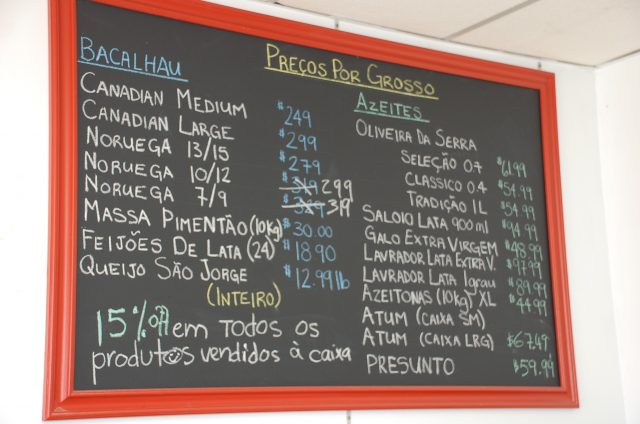 PREÇOS POR GROSSO
BACALHAU
CANADIAN MEDIUM $249
CANADIAN LARGE $299
NORUEGA 13/15 $279
NORUEGA 10/12 $319 299
NORUEGA 7/9 $329 319
MASSA PIMENTÃO (10kg) $30.00
FEIJÕES DE LATA (24) $18.90
QUEIJO SÃO JORGE $12.99 lb
(INTEIRO)
15% off em TODOS OS
produtos vendidos à caixa
AZEITES
OLIVEIRA DA SERRA
SELEÇÃO 0.7 $61.99
CLASSICO 0.4 $54.99
TRADIÇÃO 1L $54.99
SALOIO LATA 900 ml $94.99
GALO EXTRA VIRGEM $48.99
LAVRADOR LATA EXTRA V. $97.99
LAVRADOR LATA 1grau $89.99
AZEITONAS (10kg) XL $44.99
ATUM (CAIXA SM)
ATUM (CAIXA LRG) $67.49
PRESUNTO $59.99